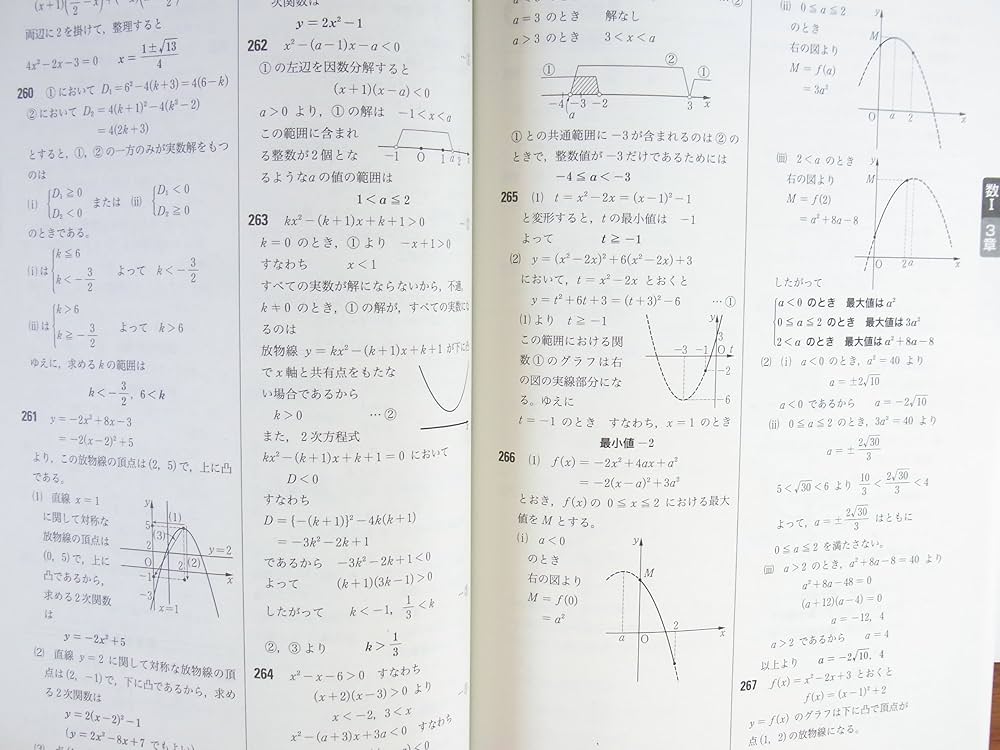 両辺に2を掛けて，整理すると
4x²−2x−3=0　x=(1±√13)/4
260 ①において D₁=6²−4(k+3)=4(6−k)
②において D₂=4(k+1)²−4(k²−2)
=4(2k+3)
とすると，①，②の一方のみが実数解をもつ
のは
(i) {D₁≧0　D₂<0 または (ii) {D₁<0　D₂≧0
のときである。
(i)は {k≦6　k<−3/2 よって k<−3/2
(ii)は {k>6　k≧−3/2 よって k>6
ゆえに，求めるkの範囲は
k<−3/2, 6<k
261 y=−2x²+8x−3
=−2(x−2)²+5
より，この放物線の頂点は(2, 5)で，上に凸
である。
(1) 直線 x=1
に関して対称な
放物線の頂点は
(0, 5)で，上に
凸であるから，
求める2次関数
は
y
5
(1)
(3)
2
y=2
O
2
(2)
x
−1
−3
x=1
y=−2x²+5
(2) 直線 y=2 に関して対称な放物線の頂
点は(2, −1)で，下に凸であるから，求め
る2次関数は
y=2(x−2)²−1
(y=2x²−8x+7 でもよい)
次関数は
y=2x²−1
262 x²−(a−1)x−a<0
①の左辺を因数分解すると
(x+1)(x−a)<0
a>0 より，①の解は −1<x<a
この範囲に含まれ
る整数が2個とな
るようなaの値の範囲は
−1 0 1 a 2
1<a≦2
263 kx²−(k+1)x+k+1>0
k=0 のとき，①より −x+1>0
すなわち x<1
すべての実数が解にならないから，不適。
k≠0 のとき，①の解が，すべての実数に
るのは
放物線 y=kx²−(k+1)x+k+1 が下に
でx軸と共有点をもたな
い場合であるから
k>0 …②
また，2次方程式
kx²−(k+1)x+k+1=0 において
D<0
すなわち
D={−(k+1)}²−4k(k+1)
=−3k²−2k+1
であるから −3k²−2k+1<0
よって (k+1)(3k−1)>0
したがって k<−1, 1/3<k
②，③より k>1/3
264 x²−x−6>0 すなわち
(x+2)(x−3)>0 より
x<−2, 3<x
x²−(a+3)x+3a<0 すなわち
a=3 のとき 解なし
a>3 のとき 3<x<a
① ② ①
−4 −3 −2 3 x
a
①との共通範囲に −3が含まれるのは②の
ときで，整数値が −3だけであるためには
−4≦a<−3
265 (1) t=x²−2x=(x−1)²−1
と変形すると，tの最小値は −1
よって t≧−1
(2) y=(x²−2x)²+6(x²−2x)+3
において，t=x²−2x とおくと
y=t²+6t+3=(t+3)²−6 …①
(1)より t≧−1
この範囲における関
数①のグラフは右
の図の実線部分にな
る。ゆえに
y
3
−3 −1 O t
−2
−6
t=−1 のとき すなわち，x=1 のとき
最小値 −2
266 (1) f(x)=−2x²+4ax+a²
=−2(x−a)²+3a²
とおき，f(x) の 0≦x≦2 における最大
値を M とする。
(i) a<0
のとき
右の図より
M=f(0)
=a²
y
M
a O 2 x
(ii) 0≦a≦2
のとき
右の図より
M=f(a)
=3a²
y
M
O a 2 x
(iii) 2<a のとき
右の図より
M=f(2)
=a²+8a−8
y
M
O 2 a x
したがって
{a<0 のとき 最大値は a²
0≦a≦2 のとき 最大値は 3a²
2<a のとき 最大値は a²+8a−8
(2) (i) a<0 のとき，a²=40 より
a=±2√10
a<0 であるから a=−2√10
(ii) 0≦a≦2 のとき，3a²=40 より
a=±2√30/3
5<√30<6 より 10/3<2√30/3<4
よって，a=±2√30/3 はともに
0≦a≦2 を満たさない。
(iii) a>2 のとき，a²+8a−8=40 より
a²+8a−48=0
(a+12)(a−4)=0
a=−12, 4
a>2 であるから a=4
以上より a=−2√10, 4
267 f(x)=x²−2x+3 とおくと
f(x)=(x−1)²+2
y=f(x) のグラフは下に凸で頂点が
点(1, 2)の放物線になる。
数Ⅰ
3章